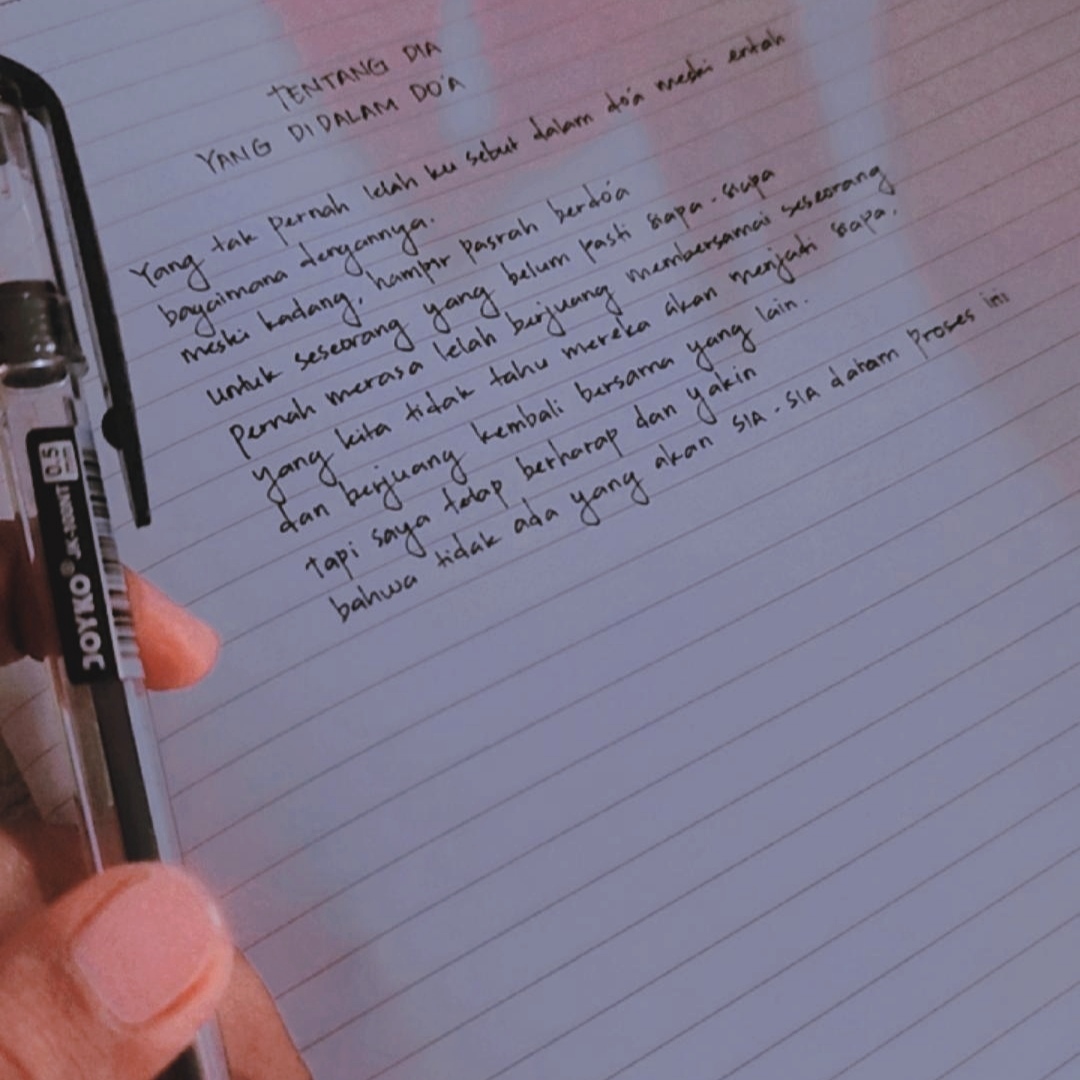 TENTANG DIA
YANG DIDALAM DO'A
Yang tak pernah lelah ku sebut dalam do'a meski entah
bagaimana dengannya.
meski kadang, hampir pasrah berdo'a
untuk seseorang yang belum pasti siapa-siapa
pernah merasa lelah berjuang membersamai seseorang
yang kita tidak tahu mereka akan menjadi siapa.
dan berjuang kembali bersama yang lain.
tapi saya tetap berharap dan yakin
bahwa tidak ada yang akan SIA-SIA dalam proses ini
JOYKO®
0.5